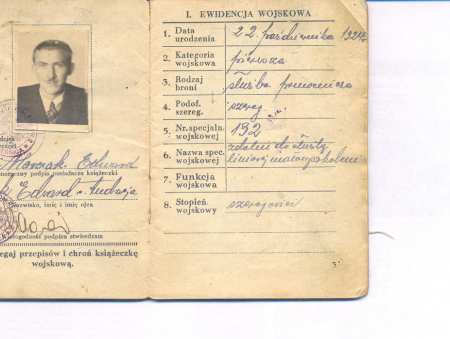 Edward
podpis posiadacza książeczki
Edward s. Andrzeja
Nazwisko, imię i imię ojca
podpisu stwierdzam
przepisów i chroń książeczkę
wojskową.
I. EWIDENCJA WOJSKOWA
1. Data urodzenia 22 października
2. Kategoria wojskowa pierwsza
3. Rodzaj broni służba pomocnicza
4. Podof. szereg. szereg.
5. Nr. specjaln. wojskowej 192
6. Nazwa spec. wojskowej zdolni do służby
liniowej
7. Funkcja wojskowa
8. Stopień wojskowy szeregowiec